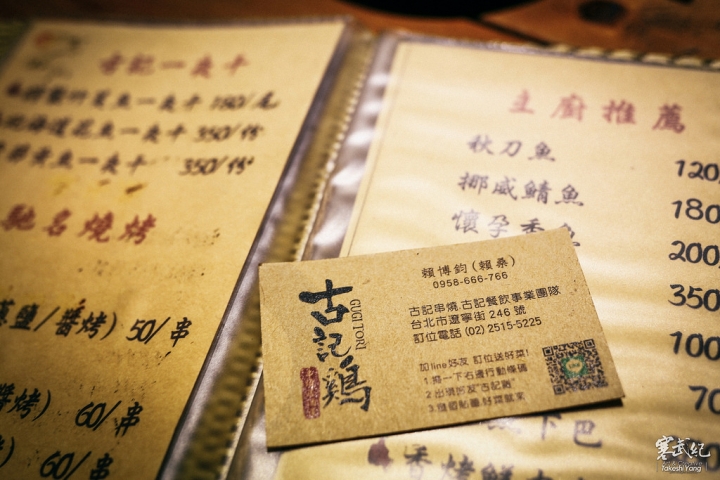 古記一夜干
竹莢魚一夜干 180/尾
花魚一夜干 350/份
魚一夜干 350/份
馳名燒烤
鹽/醬烤) 50/串
醬烤) 60/串
60/串
主廚推薦
秋刀魚 120
挪威鯖魚 180
懷孕香魚 200
350
100
70
下巴
香烤鮮
賴博鈞(賴桑)
0958-666-766
古記串燒.古記餐飲事業團隊
台北市遼寧街 246 號
訂位電話 (02) 2515-5225
加line好友 訂位送好菜!
1.掃一下右邊行動條碼
2.出現好友"古記雞"
古記鷄
GUGI TORI
寒武紀
Takeshi Yang